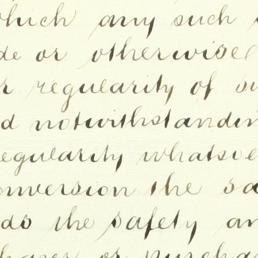 which any such
de or otherwise
r regularity of su
d notwithstandin
egularity whatsoe
onversion the sa
ds the safety an
chaser or purcha